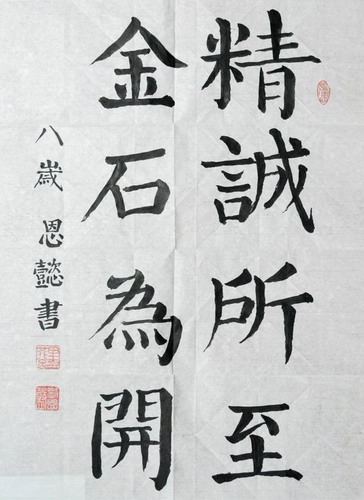 精誠所至
金石為開
八歲恩懿書